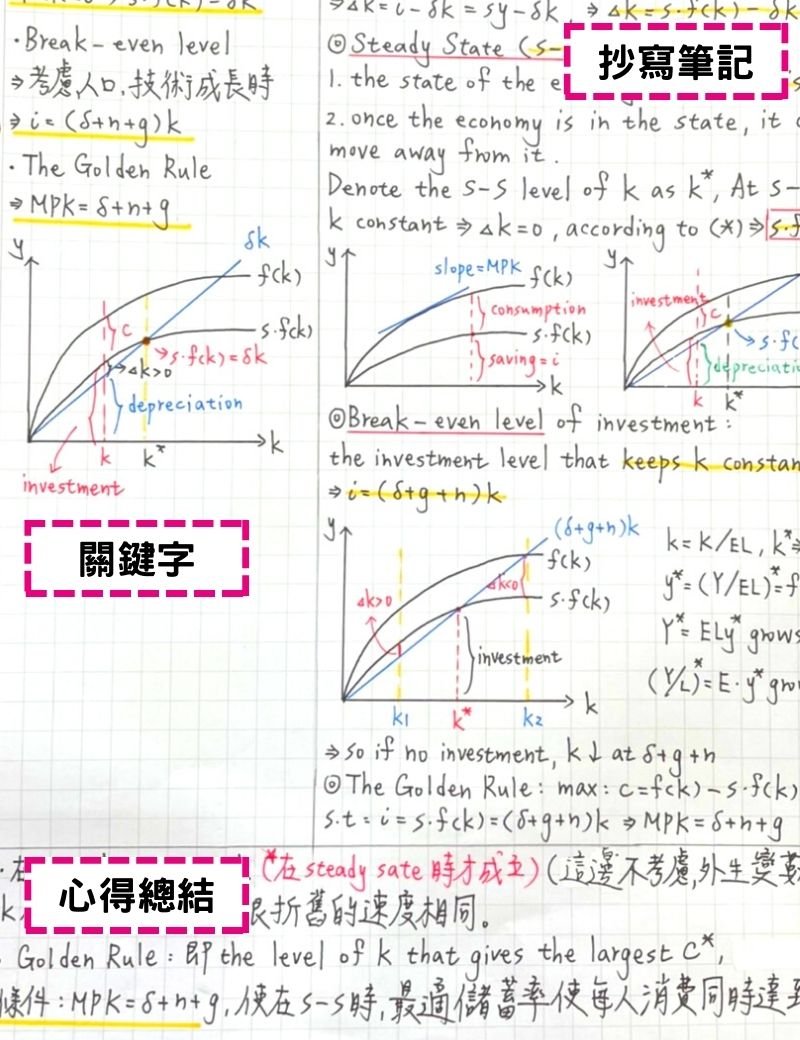 ·Break-even level
⇒考慮人口,技術成長時
⇒ i=(δ+n+g)k
·The Golden Rule
⇒ MPK=δ+n+g
y
δk
f(k)
s·f(k)
c
s·f(k)=δk
Δk>0
depreciation
k
k*
k
investment
關鍵字
⇒Δk=i-δk=sy-δk, ⇒Δk=s·f(k)-δk
◎Steady State (s-
抄寫筆記
1. the state of the
2. once the economy is in the state, it
move away from it.
Denote the s-s level of k as k*, At s-
k constant ⇒Δk=0, according to (*)⇒ s·f
y
slope=MPK
f(k)
consumption
s·f(k)
saving=i
k
y
investment
c
s·f(
depreciati
k
k*
◎Break-even level of investment:
the investment level that keeps k constan
⇒ i=(δ+g+n)k
y
(δ+g+n)k
f(k)
Δk<0
s·f(k)
Δk>0
investment
k1
k*
k2
k
k=K/EL, k*⇒
y*=(Y/EL)*=f
Y*=ELy* grows
(Y/L)*=E·y* grow
⇒so if no investment, k↓ at δ+g+n
◎The Golden Rule: max: c=f(k)-s·f(k)
s.t=i=s.f(k)=(δ+g+n)k ⇒ MPK=δ+n+g
心得總結
(*在steady sate 時才成立)(這邊不考慮,外生變
折舊的速度相同。
·Golden Rule: 即 the level of k that gives the largest c*,
條件:MPK=δ+n+g, 使在s-s時,最適儲蓄率使每人消費同時達到